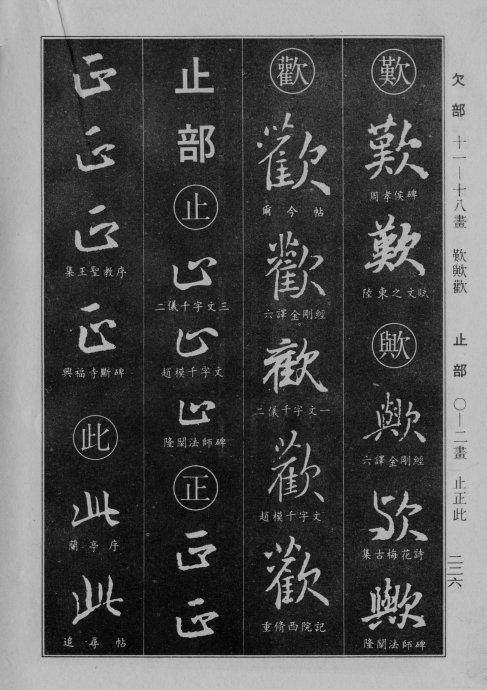 欠部 十一—十八畫 歎歟歡 止部 〇—二畫 止正此 二二六
歎
歎
周孝侯碑
歎
陸柬之文賦
歟
歟
六譯金剛經
歟
集古梅花詩
歟
隆闡法師碑
歡
歡
爾今帖
歡
六譯金剛經
歡
二儀千字文一
歡
趙模千字文
歡
重脩西院記
止部
止
止
二儀千字文三
止
趙模千字文
止
隆闡法師碑
正
正
正
正
正
正
集王聖教序
正
興福寺斷碑
此
此
蘭亭序
此
追尋帖